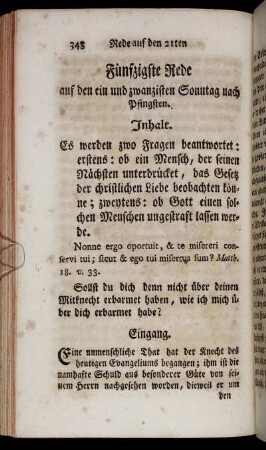 348 Rede auf den 21ten
Fünfzigste Rede
auf den ein und zwanzisten Sonntag nach
Pfingsten.
Inhalt.
Es werden zwo Fragen beantwortet:
erstens: ob ein Mensch, der seinen
Nächsten unterdrücket, das Gesetz
der christlichen Liebe beobachten kön-
ne; zweytens: ob Gott einen sol-
chen Menschen ungestraft lassen wer-
de.
Nonne ergo oportuit, & te misereri con-
servi tui; sicut & ego tui misertus sum? Matth.
18. v. 33.
Sollst du dich denn nicht über deinen
Mitknecht erbarmet haben, wie ich mich ü-
ber dich erbarmet habe?
Eingang.
Eine unmenschliche That hat der Knecht des
heutigen Evangeliums begangen; ihm ist die
namhafte Schuld aus besonderer Güte von sei-
nem Herrn nachgesehen worden, dieweil er um
den